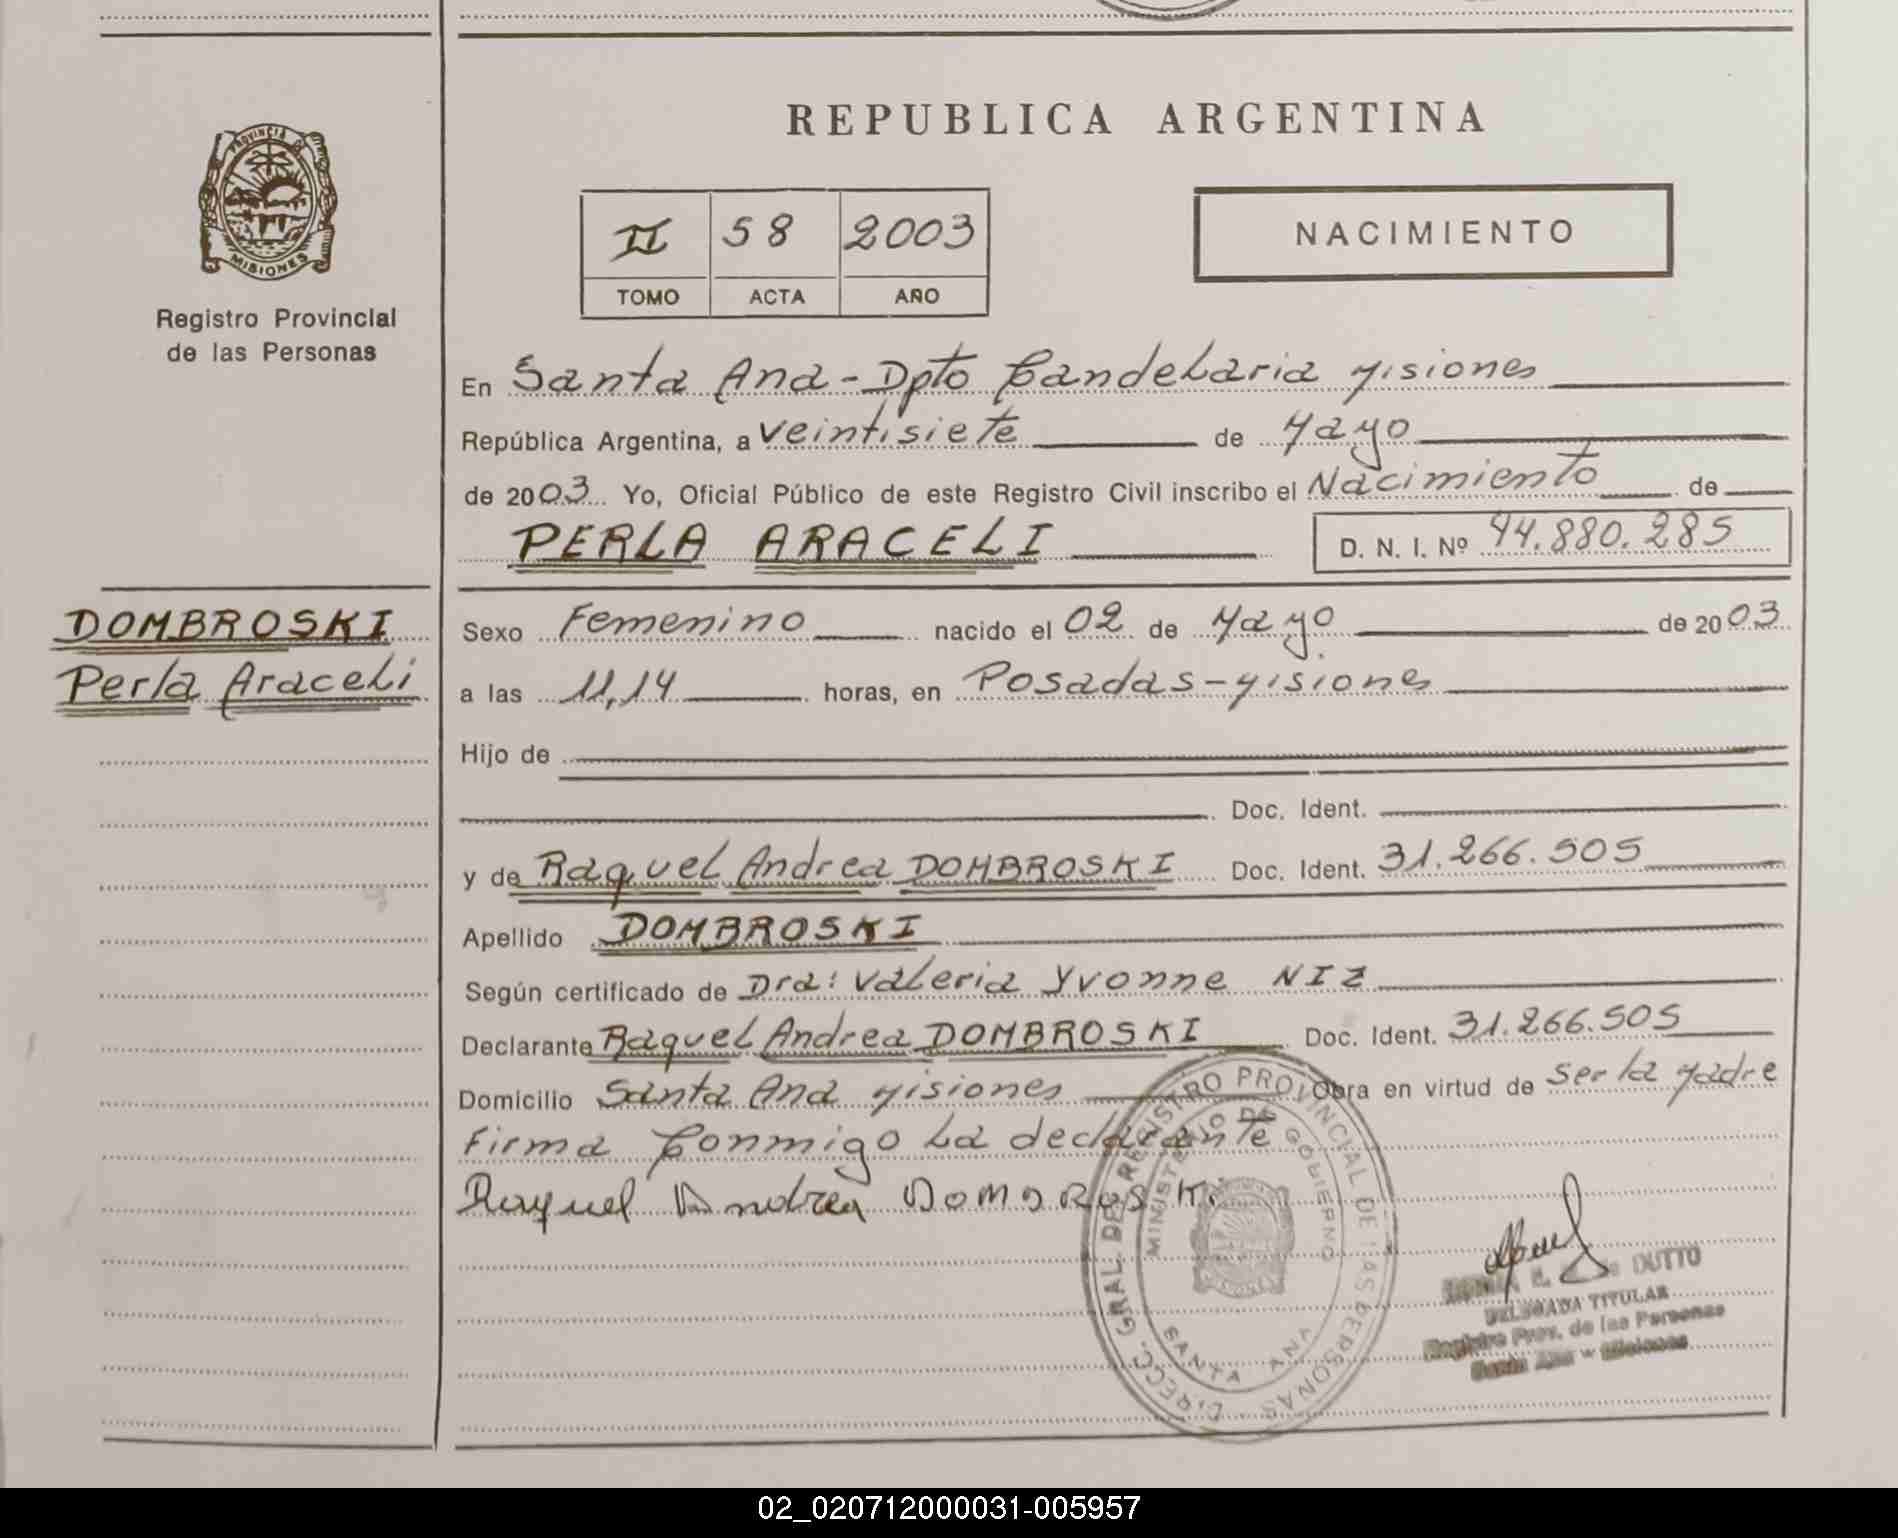 REPUBLICA ARGENTINA
PROVINCIA DE
MISIONES
Registro Provincial
de las Personas
II 58 2003
TOMO ACTA AÑO
NACIMIENTO
En Santa Ana - Dpto Candelaria Misiones
República Argentina, a veintisiete de Mayo
de 2003 Yo, Oficial Público de este Registro Civil inscribo el Nacimiento de
PERLA ARACELI D. N. I. Nº 44.880.285
DOMBROSKI
Perla Araceli
Sexo Femenino nacido el 02 de Mayo de 2003
a las 11,14 horas, en Posadas - Misiones
Hijo de
Doc. Ident.
y de Raquel Andrea DOMBROSKI Doc. Ident. 31.266.505
Apellido DOMBROSKI
Según certificado de Dra: Valeria Yvonne NIZ
Declarante Raquel Andrea DOMBROSKI Doc. Ident. 31.266.505
Domicilio Santa Ana Misiones Obra en virtud de ser la Madre
Firma Conmigo La declarante
Raquel Andrea DOMBROSKI
DIRECC. GRAL. DEL REGISTRO PROVINCIAL DE LAS PERSONAS
MINISTERIO DE GOBIERNO
MISIONES
SANTA ANA
DUTTO
DELEGADA TITULAR
Registro Prov. de las Personas
Santa Ana - Misiones
02_020712000031-005957